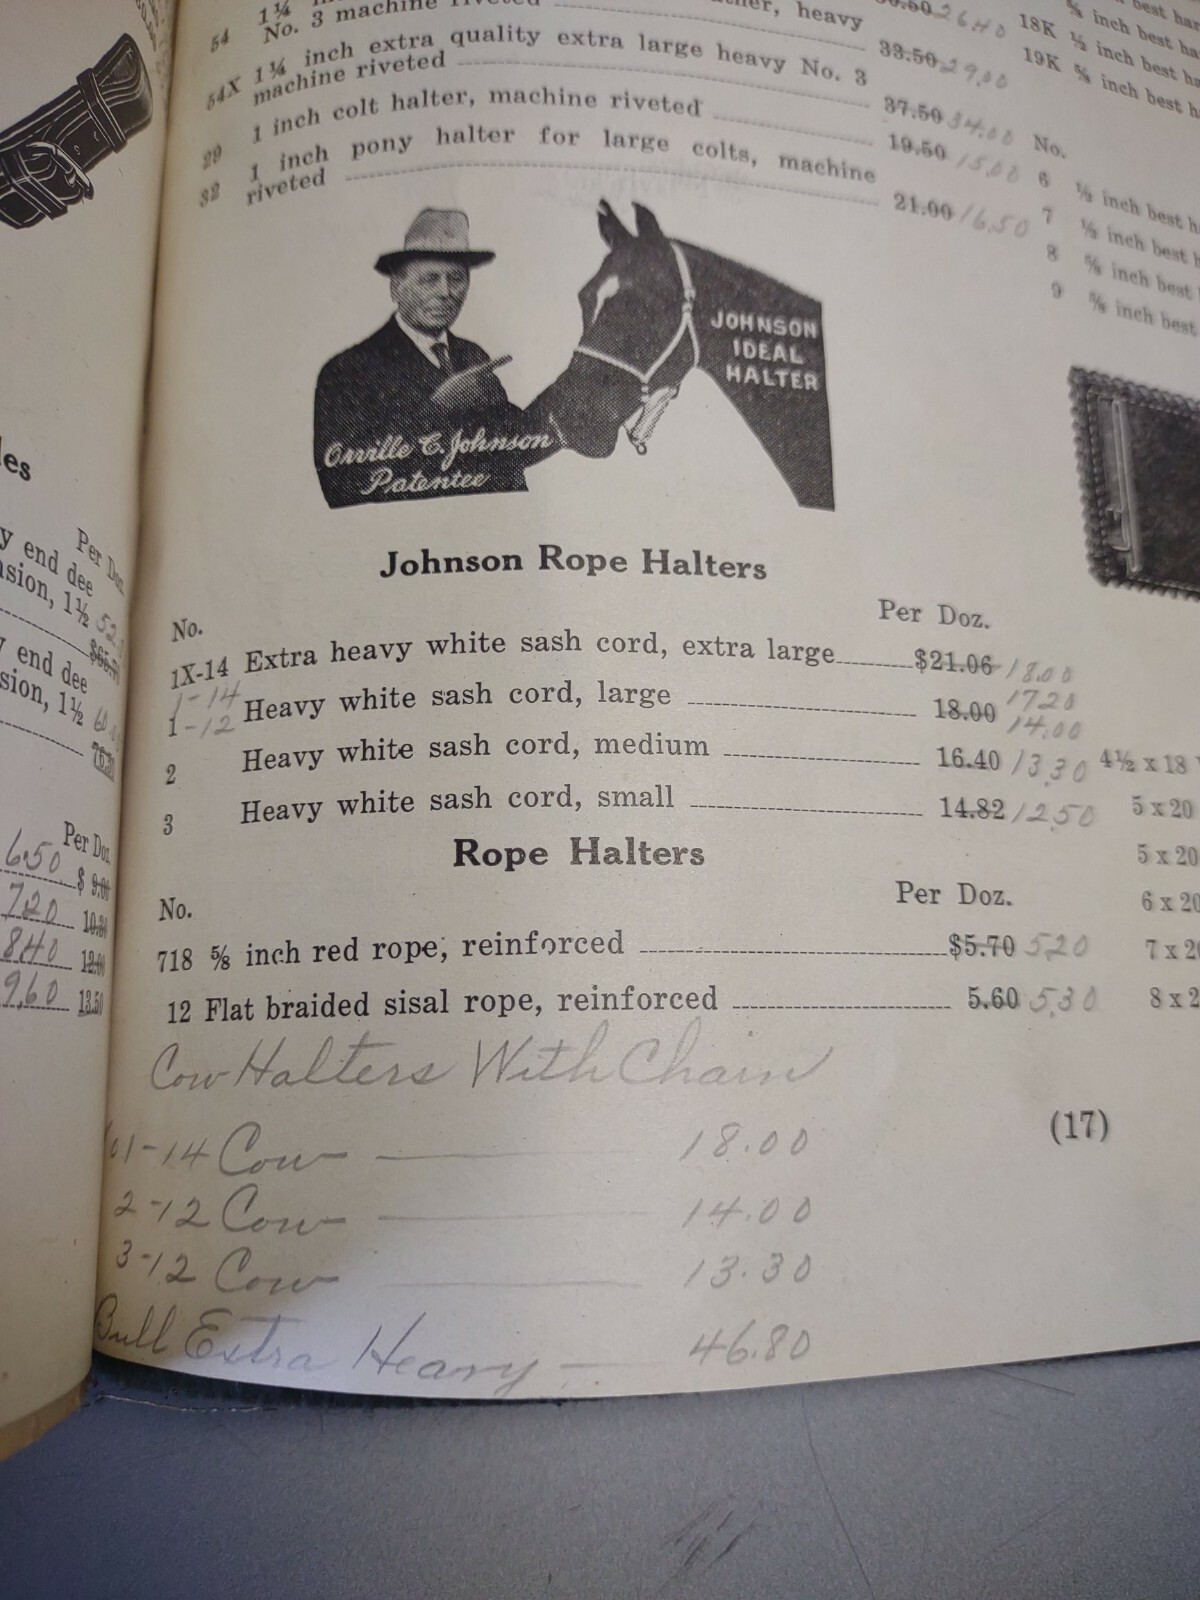 54 1¼
No. 3 machine riveted heavy 33.50 29.00
54X 1¼ inch extra quality extra large heavy No. 3
machine riveted 37.50 34.00
29 1 inch colt halter, machine riveted 19.50 15.00
32 1 inch pony halter for large colts, machine
riveted 21.00 16.50
JOHNSON
IDEAL
HALTER
Orville C. Johnson
Patentee
Johnson Rope Halters
No. Per Doz.
1X-14 Extra heavy white sash cord, extra large $21.06 18.00
1-14 17.20
1-12 Heavy white sash cord, large 18.00 14.00
2 Heavy white sash cord, medium 16.40 13.30
3 Heavy white sash cord, small 14.82 12.50
Rope Halters
No. Per Doz.
718 ⅝ inch red rope, reinforced $5.70 5.20
12 Flat braided sisal rope, reinforced 5.60 5.30
Cow Halters With Chain
1-14 Cow 18.00
2-12 Cow 14.00
3-12 Cow 13.30
Bull Extra Heavy 46.80
(17)
les
Per Doz.
y end dee
sion, 1½
end dee
sion, 1½
Per Doz.
6.50 $ 9.00
7.20 10.20
8.40 12.00
9.60 13.50
18K ½ inch best
19K ⅝ inch best h
No.
6 ½ inch best h
7 ½ inch best h
8 ⅝ inch best
9 ⅝ inch best
4½ x 18
5 x 20
5 x 20
6 x 20
7 x 2
8 x 2